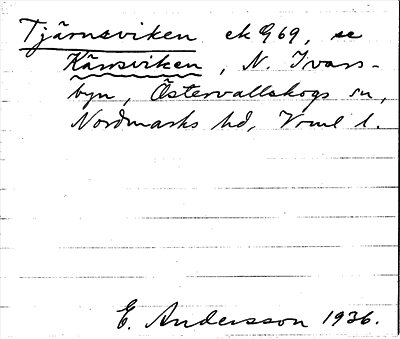 Tjärnsviken ek G69, se
Kärrsviken, N. Ivars-
byn, Östervallskogs sn,
Nordmarks hd, Vrml l.
E. Andersson 1936.